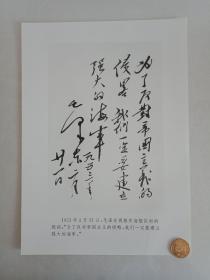 为了反對帝國主義的
侵畧 我們一定要建立
强大的海軍
一九五三年
毛澤東 二月
廿一日
1953年2月21日,毛泽东视察海
题词:“为了反对帝国主义的侵略,我们一定要建立
强大的海军。”